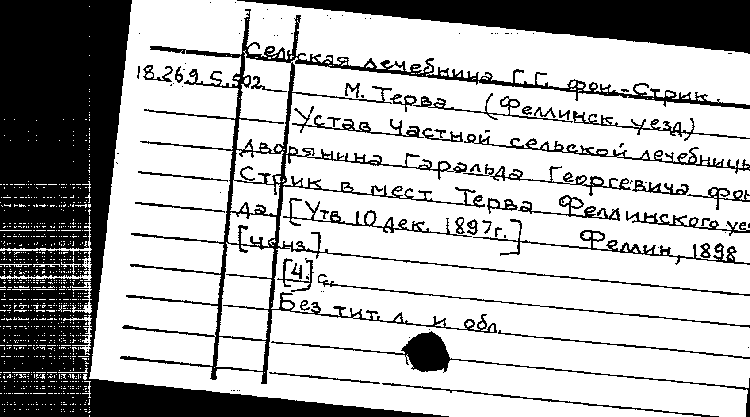 Сельская лечебница Г.Г. фон-Стрик.
18.269.5.502.
М. Терва. (Феллинск. уезд.)
Устав частной сельской лечебницы
дворянина Гаральда Георгевича фон
Стрик в мест. Терва Феллинского уез
да. [Утв. 10 дек. 1897г.] Феллин, 1898
[ценз.].
[4] с.
Без тит. л. и обл.